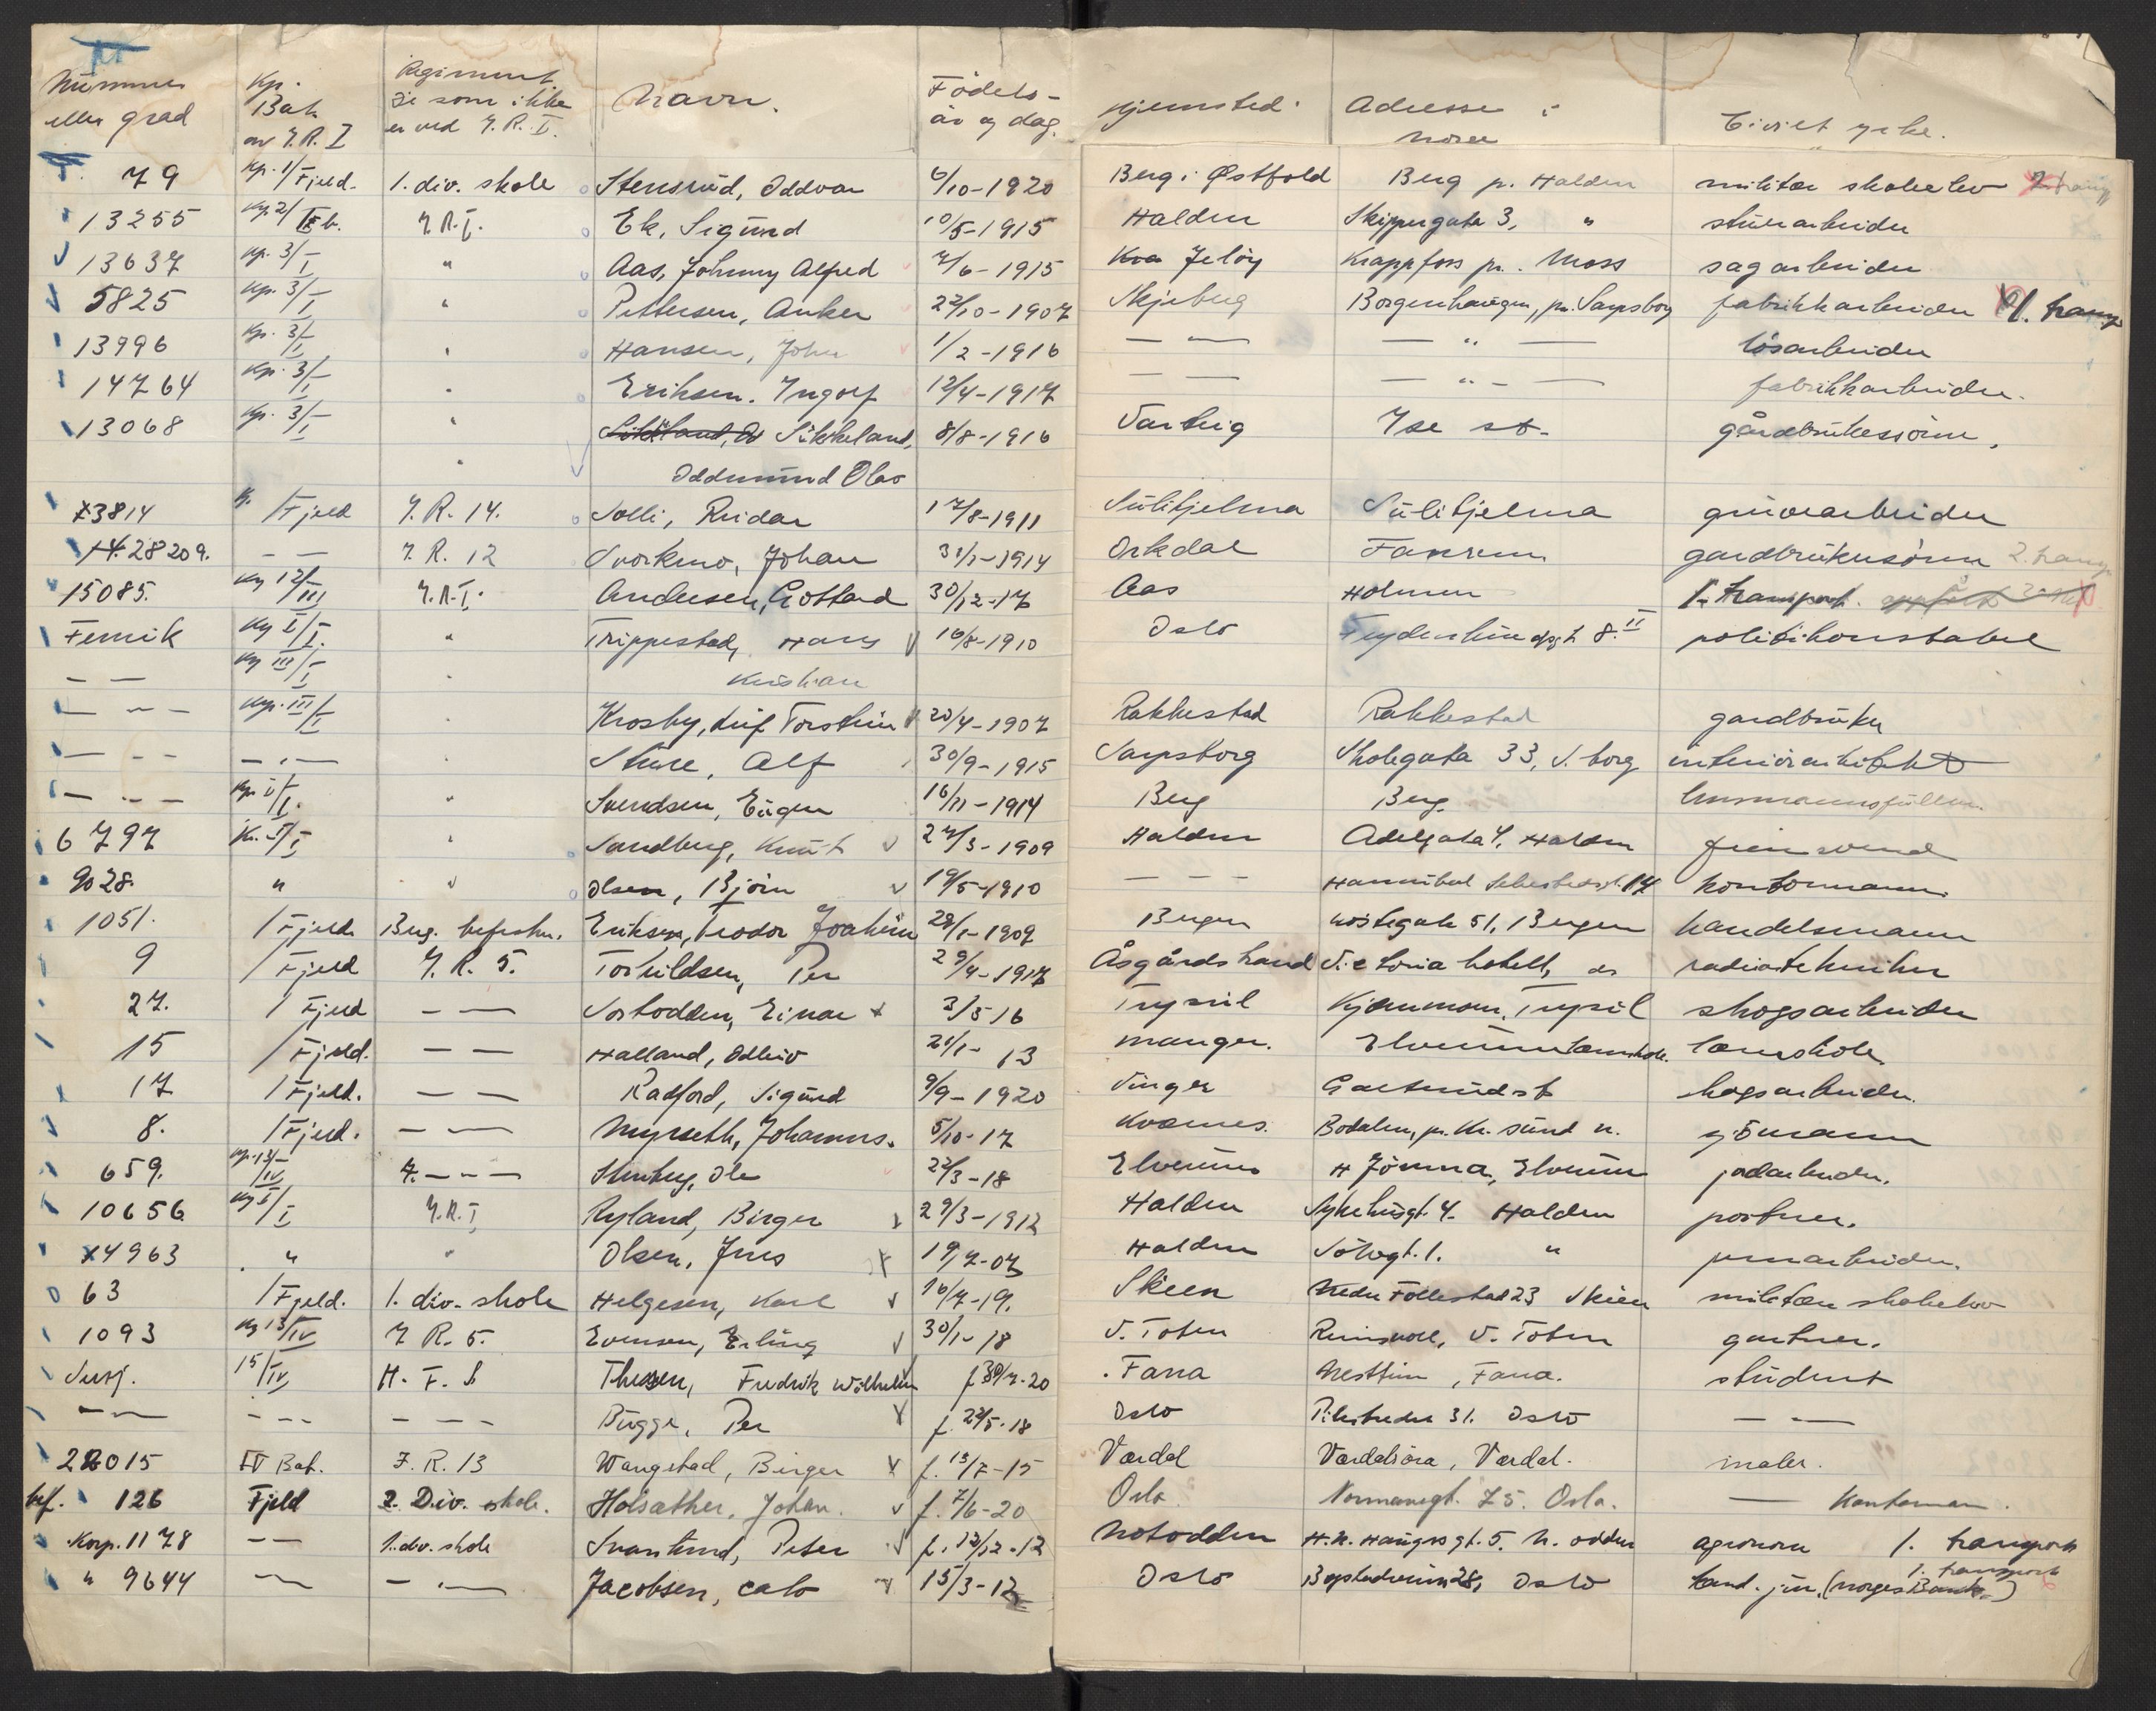 Nummer eller grad | Kp. Bat. av I.R. I | Regiment de som ikke er ved I.R. I. | Navn. | Födels- år og dag. | Hjemsted. | Adresse i Norge | Civilt yrke.
79 | Kp. 1/Fjeld. | 1. div. skole | Stensrud, Oddvar | 6/10-1920 | Berg i Østfold | Berg p. Halden | militær skoleelev
13255 | Kp 2/ | I.R.I. | Ek, Sigurd | 10/5-1915 | Halden | Skippergata 3, " | stuerarbeider
13637 | Kp. 3/I | " | Aas, Johnny Alfred | 7/6-1915 | Jelöy | Krappfoss pr. Moss | sagarbeider
5825 | Kp. 3/I | " | Pettersen, Anker | 22/10-1907 | Skjeberg | Borgenhaugen, pr. Sarpsborg | fabrikkarbeider 1. transp
13996 | Kp. 3/I | " | Hansen, John | 1/2-1916 | — — | — " — | lösarbeider
14764 | Kp. 3/I | " | Eriksen. Ingolf | 12/4-1917 | — — | — " — | fabrikkarbeider.
13068 | Kp. 3/I | " | Sikkeland, | 8/8-1916 | Varteig | Ise st. | gårdbrukersönn.
" | Oddmund Olav
3814 | K. /Fjeld | I.R. 14. | Solli, Reidar | 17/8-1911 | Sulitjelma | Sulitjelma | gruvearbeider
28209. | — — | I.R. 12 | Svorkmo, Johan | 31/1-1914 | Orkdal | Fanrem | gardbrukersönn 2. transp
15085. | Kp 12/III | I.R.I. | Andersen, Gottard | 30/12-17 | Aas | Holmen | 1. transport.
Fenrik | Kp II/I. | " | Trippestad, Hans | 16/8-1910 | Oslo | 8.II | politikonstabel
— — | Kp III/I | " | Kristian
— — — | Kp. III/I | " | Krosby, Leif Torstein | 20/4-1907 | Rakkestad | Rakkestad | gardbruker
— — — | — " — | " | Sture, Alf | 30/9-1915 | Sarpsborg | Skolegata 33, S. borg | interiörarkitekt
— — — | Kp. II/I. | " | Svendsen, Eugen | 16/11-1914 | Berg | Berg. | lensmannsfullm.
6797 | " | Sandberg, Knut | 27/3-1909 | Halden | Adelgata 4, Halden
9028. | " | " | Olsen, Björn | 19/5-1910 | — — — | Hannibal Sehestedsgt. 17 | kontormann
1051. | /Fjeld | Berg. befestn. | Eriksen, Teodor Joakim | 28/1-1909 | Bergen | Nöstegate 51, Bergen | handelsmann
9 | /Fjeld | I.R. 5. | Torkildsen, Per | 29/4-1917 | Åsgårdstrand | Victoria hotell, | radiotekniker
27. | /Fjeld | — — | Nortodden, Einar | 3/5 16 | Trysil | Trysil | skogsarbeider
15 | /Fjeld. | — — | Halland, Odleiv | 21/1- 13 | Manger. | Elverum | lærerskole
17 | /Fjeld. | — — | Radford, Sigurd | 9/9-1920 | Vinger | Galterud st | skogsarbeider.
8. | /Fjeld. | — — | Myrseth, Johannes. | 5/10-17 | Kvarnes. | Bodalen, pr. Kr. sund n. | sjömann
659. | Kp. 13/IV | — — — | Stenberg, Ole | 22/3-18 | Elverum | Hjömna, Elverum | jordarbeider.
10656 | Kp II/I | I.R.I | Ryland, Birger | 29/3-1912 | Halden | Sykehusgt. 4. Halden | portner.
4963 | " | " | Olsen, Jens | 19/7-07 | Halden | 1. " | jernarbeider.
63 | /Fjeld. | 1. div. skole | Helgesen, Karl | 16/7-19. | Skien | Nedre Follestad 23 Skien | militær skoleelev
1093 | Kp 13/IV | I R. 5. | Evensen, Erling | 30/1-18 | V. Toten | Reinsvoll, V. Toten | gartner.
Sersj. | 15/IV | H. F. S | Thesen, Fredrik Wilhelm | f 30/7-20 | Fana | Nesttun, Fana. | student
— — | — — — | — — — | Bugge, Per | f. 22/5-18 | Oslo | Pilestredet 31. Oslo | — —
22015 | IV Bat. | I.R. 13 | Wangstad, Birger | f. 13/7-15 | Værdal | Værdalsöra, Værdal. | maler.
bef. 126 | Fjeld | 2. Div. skole. | Holsæther, Johan. | f. 7/6-20 | Oslo | Normannsgt. 75. Oslo. | — Kontorman.
Korp. 1178 | — — | 1. div. skole | Svartund, Peter | f. 12/12-12 | Notodden | H.H. Haugesgt. 5. N. odden | agronom 1. transport
" 9644 | — — | — — | Jacobsen, Cato | 15/3-12 | Oslo | Bogstadveien 28, Oslo | cand. jur. (Norges Bank.) 1. transport